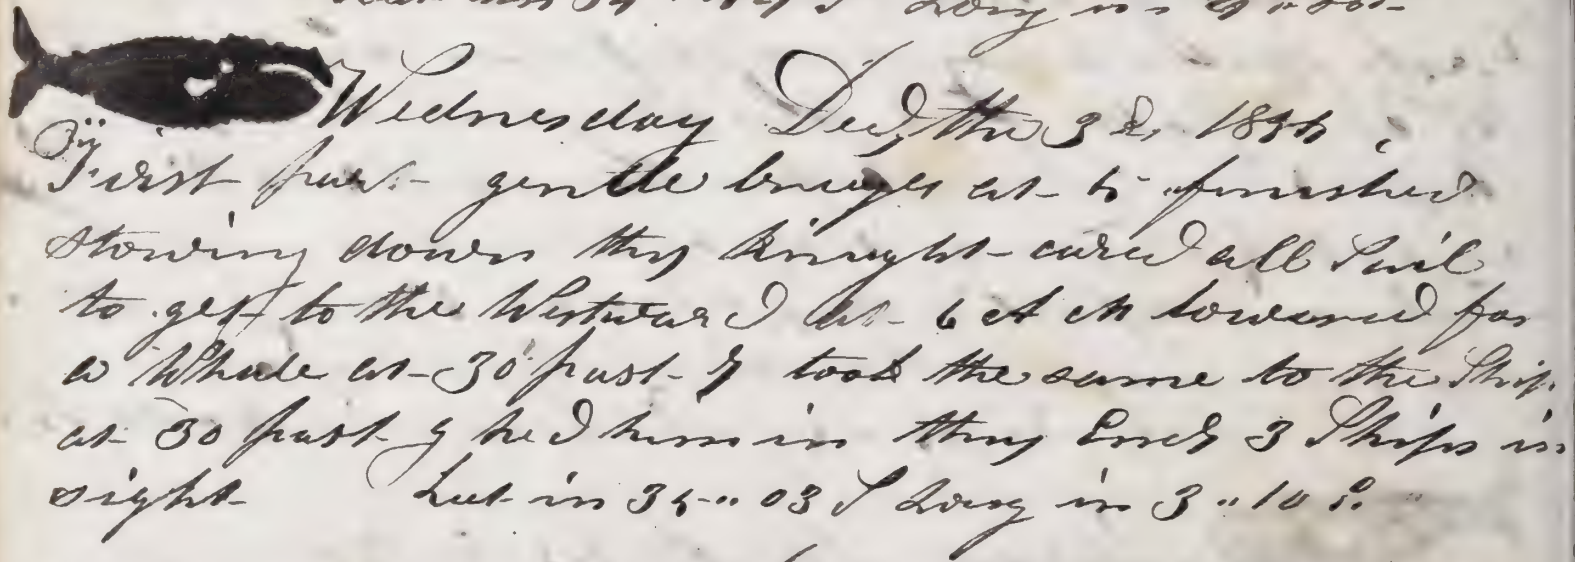 Wednesday Decd, the 3d, 1834
First part gentle breezes at 5 finished
stowing down knight cared all Sail
to get to the Westward at 6 A M lowered for
a Whale at 30 past 7 took the same to the Ship
at 30 past 9 hed him in thus Ends 3 Ships in
sight Lat in 34 " 03 S Long in 3 " 10